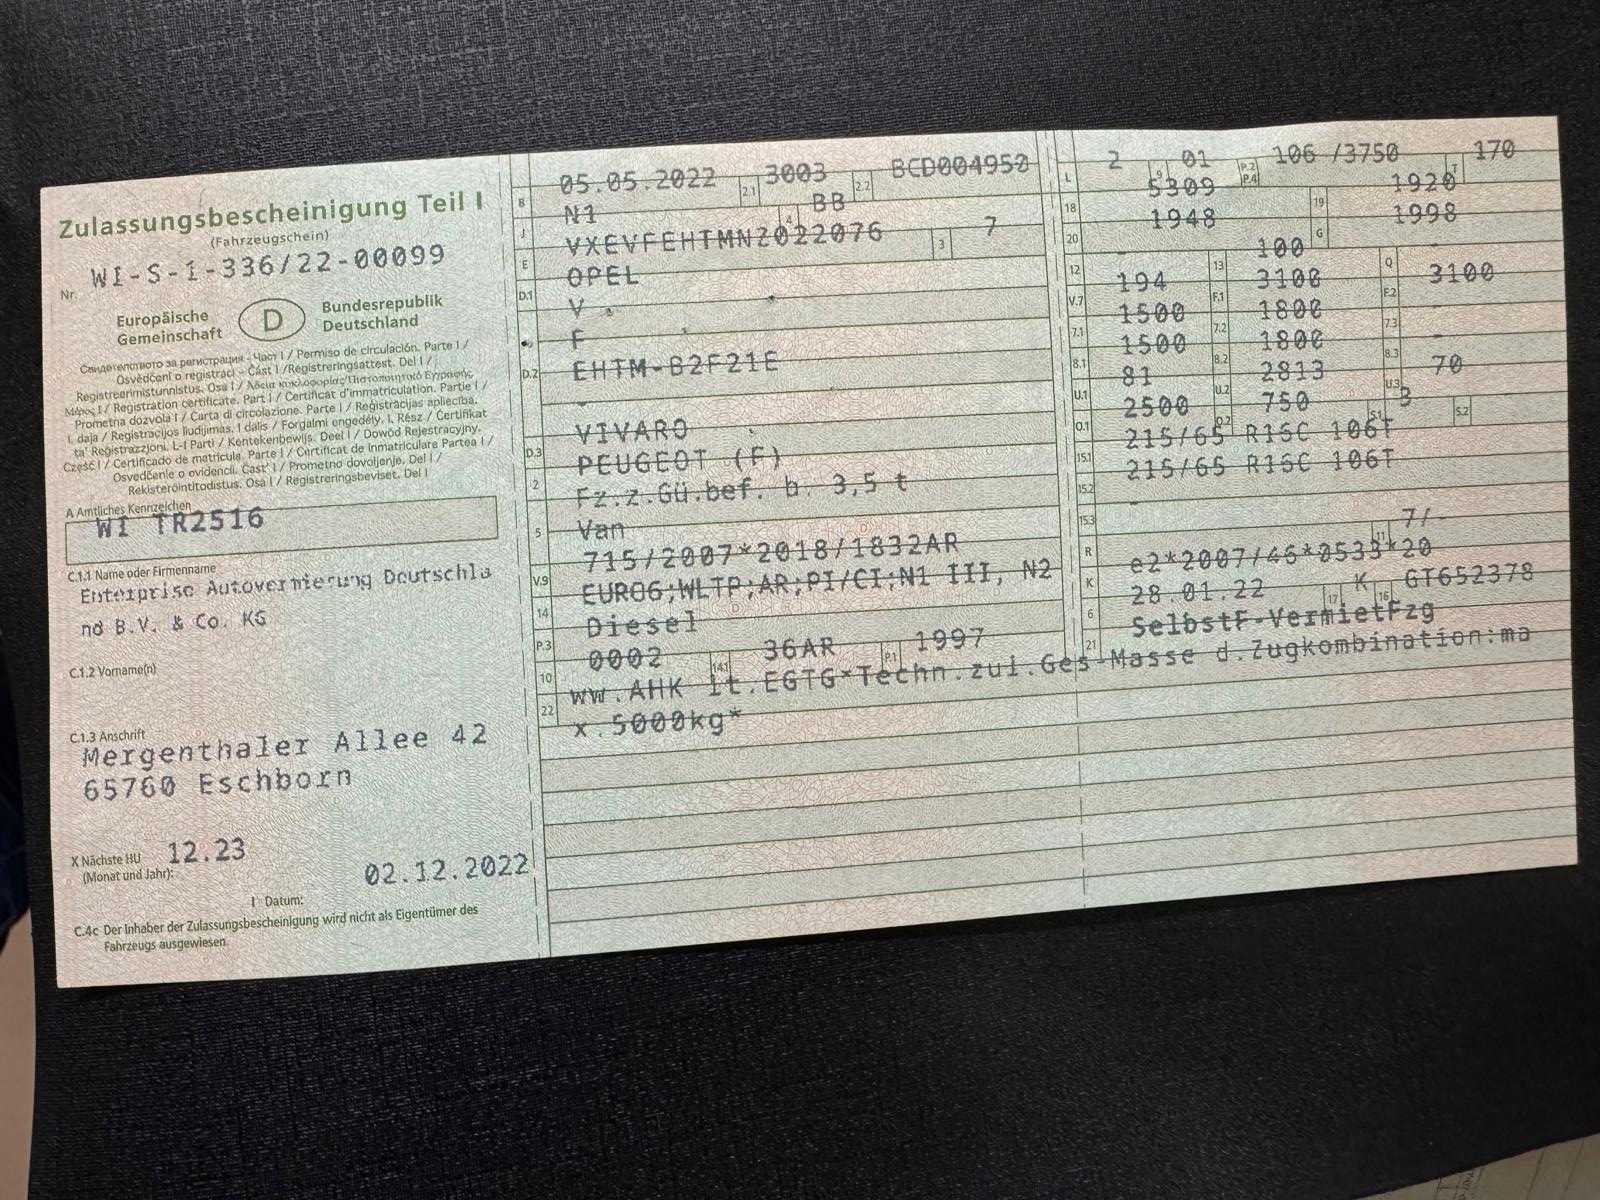 Zulassungsbescheinigung Teil I
(Fahrzeugschein)
Nr. WI-S-1-336/22-00099
Europäische Gemeinschaft
D
Bundesrepublik Deutschland
Свидетелството за регистрация - Част I / Permiso de circulación. Parte I /
Osvědčení o registraci – Část I / Registreringsattest. Del I /
Registreerimistunnistus. Osa I / Άδεια κυκλοφορίας/Πιστοποιητικό Εγγραφής
Μέρος I / Registration certificate. Part I / Certificat d'immatriculation. Partie I /
Prometna dozvola I / Carta di circolazione. Parte I / Reģistrācijas apliecība.
I. daļa / Registracijos liudijimas. I dalis / Forgalmi engedély. I. Rész / Ċertifikat
ta' Reġistrazzjoni. L-I Parti / Kentekenbewijs. Deel I / Dowód Rejestracyjny.
Część I / Certificado de matrícula. Parte I / Certificat de înmatriculare Partea I /
Osvedčenie o evidencii. Časť I / Prometno dovoljenje. Del I /
Rekisteröintitodistus. Osa I / Registreringsbeviset. Del I
A Amtliches Kennzeichen
WI TR2516
C.1.1 Name oder Firmenname
Enterprise Autovermietung Deutschla
nd B.V. & Co. KG
C.1.2 Vorname(n)
C.1.3 Anschrift
Mergenthaler Allee 42
65760 Eschborn
X Nächste HU 12.23
(Monat und Jahr):
02.12.2022
I Datum:
C.4c Der Inhaber der Zulassungsbescheinigung wird nicht als Eigentümer des
Fahrzeugs ausgewiesen.
B 05.05.2022 2.1 3003 2.2 BCD004950
J N1 4 BB
E VXEVFEHTMNZ022076 3 7
D.1 OPEL
V
F
D.2 EHTM-B2F21E
-
D.3 VIVARO
2 PEUGEOT (F)
5 Fz.z.Gü.bef. b. 3,5 t
Van
V.9 715/2007*2018/1832AR
14 EURO6;WLTP;AR;PI/CI;N1 III, N2
P.3 Diesel
10 0002 14.1 36AR P.1 1997
22 ww.AHK lt.EGTG*Techn.zul.Ges-Masse d.Zugkombination:ma
x.5000kg*
L 2 9 01 P.2 P.4 106 /3750 T 170
18 5309 19 1920
20 1948 G 1998
12 - 13 100 Q -
V.7 194 F.1 3100 F.2 3100
7.1 1500 7.2 1800 7.3 -
8.1 1500 8.2 1800 8.3 -
U.1 81 U.2 2813 U.3 70
O.1 2500 O.2 750 S.1 3 S.2
15.1 215/65 R16C 106T
15.2 215/65 R16C 106T
15.3
R 11 7/-
K e2*2007/46*0533*20
6 28.01.22 17 K 16 GT652378
21 SelbstF-VermietFzg